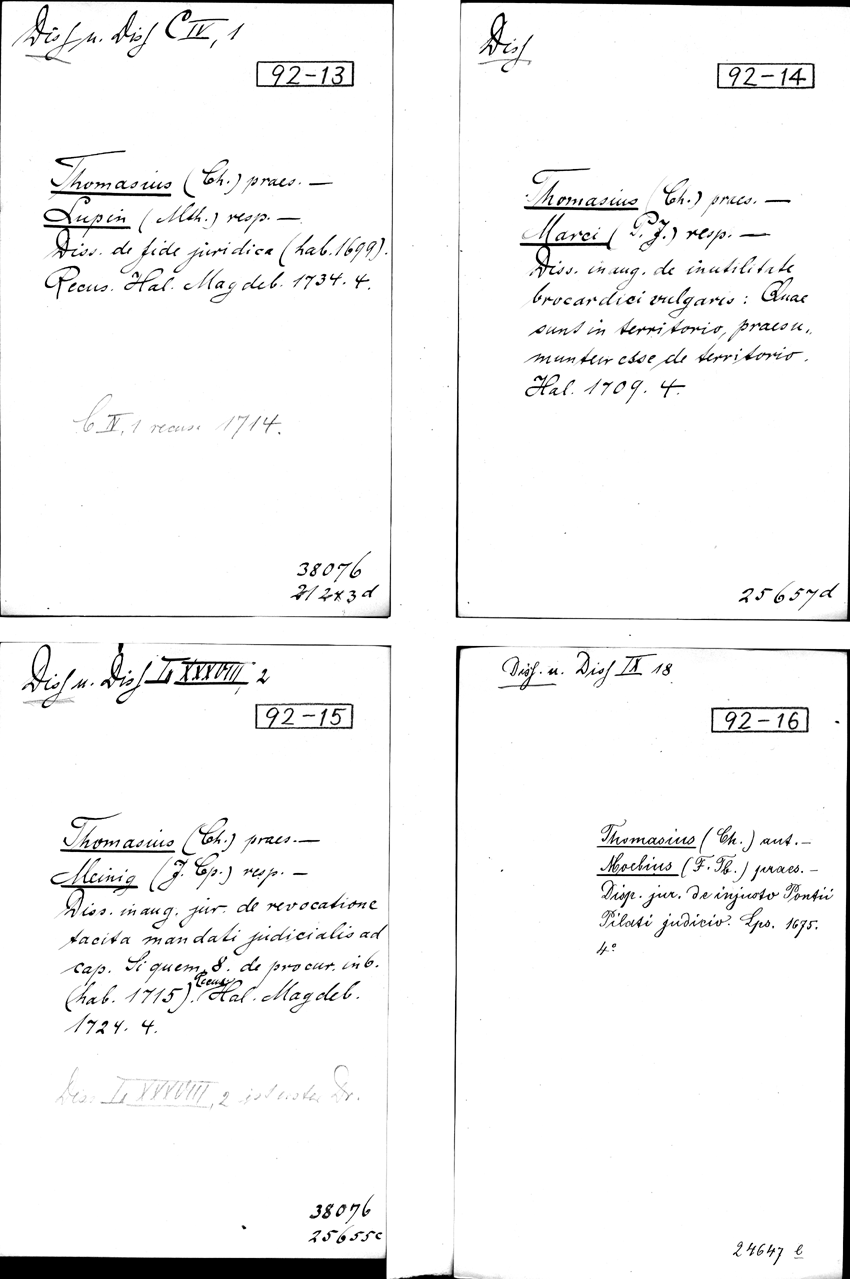 Diss u. Diss C IV, 1
92-13
Thomasius (Ch.) praes. —
Lupin (Mth.) resp. —
Diss. de fide juridica (hab. 1699).
Recus. Hal. Magdeb. 1734. 4.
C IV, 1 recus. 1714.
38076
21243d
Diss
92-14
Thomasius (Ch.) praes. —
Marci (P. J.) resp. —
Diss. inaug. de inutilitate
brocardici vulgaris: Quae
sunt in territorio, praesu,
muntur esse de territorio.
Hal. 1709. 4.
25657d
Diss u. Diss I, XXXVIII, 2
92-15
Thomasius (Ch.) praes. —
Meinig (J. Cp.) resp. —
Diss. inaug. jur. de revocatione
tacita mandati judicialis ad
cap. Si quem 8. de procur. in 6.
(hab. 1715). Recus. Hal. Magdeb.
1724. 4.
Diss. I, XXXVIII, 2 ist unter Dr.
38076
25655c
Diss. u. Diss IX 18
92-16
Thomasius (Ch.) aut. —
Moebius (F. Th.) praes. —
Disp. jur. de injusto Pontii
Pilati judicio. Lps. 1675.
4°
24647 e